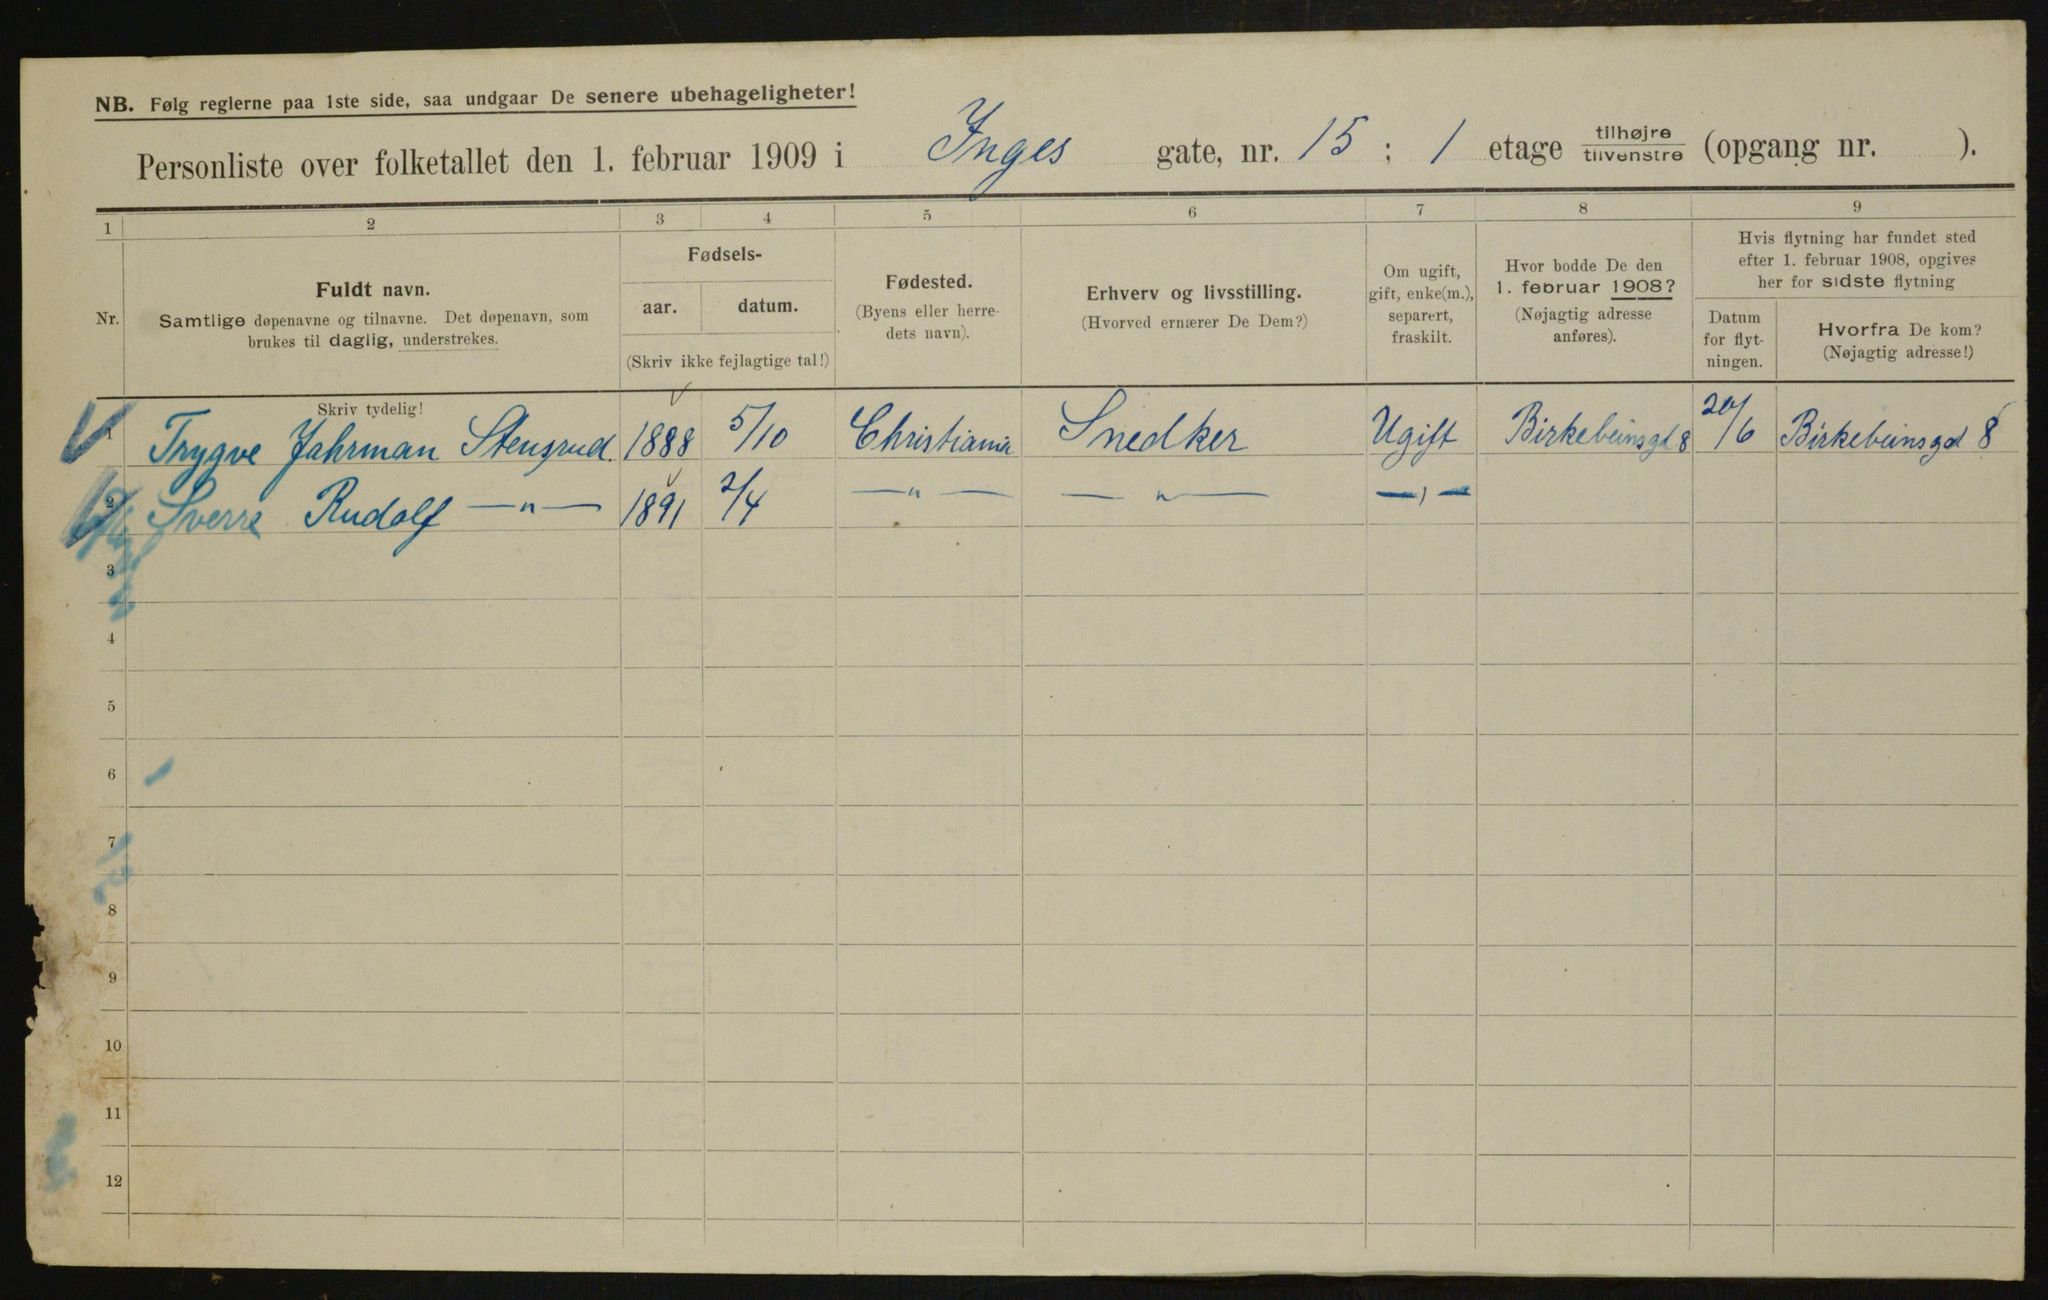 NB. Følg reglerne paa 1ste side, saa undgaar De senere ubehageligheter!
Personliste over folketallet den 1. februar 1909 i Inges gate, nr. 15 ; 1 etage tilhøjre tilvenstre (opgang nr. ).
1 2 3 4 5 6 7 8 9
Nr.
Fuldt navn.
Samtlige døpenavne og tilnavne. Det døpenavn, som
brukes til daglig, understrekes.
Skriv tydelig!
Fødsels-
aar. datum.
(Skriv ikke fejlagtige tal!)
Fødested.
(Byens eller herre-
dets navn).
Erhverv og livsstilling.
(Hvorved ernærer De Dem?)
Om ugift,
gift, enke(m.),
separert,
fraskilt.
Hvor bodde De den
1. februar 1908?
(Nøjagtig adresse
anføres).
Hvis flytning har fundet sted
efter 1. februar 1908, opgives
her for sidste flytning
Datum
for flyt-
ningen.
Hvorfra De kom?
(Nøjagtig adresse!)
1 Trygve Jahrman Stensrud. 1888 5/10 Christiania Snedker Ugift Birkebeinsgd 8 20/6 Birkebeinsgd 8
2 Sverre Rudolf —"— 1891 2/4 —"— —"— —"—
3
4
5
6
7
8
9
10
11
12